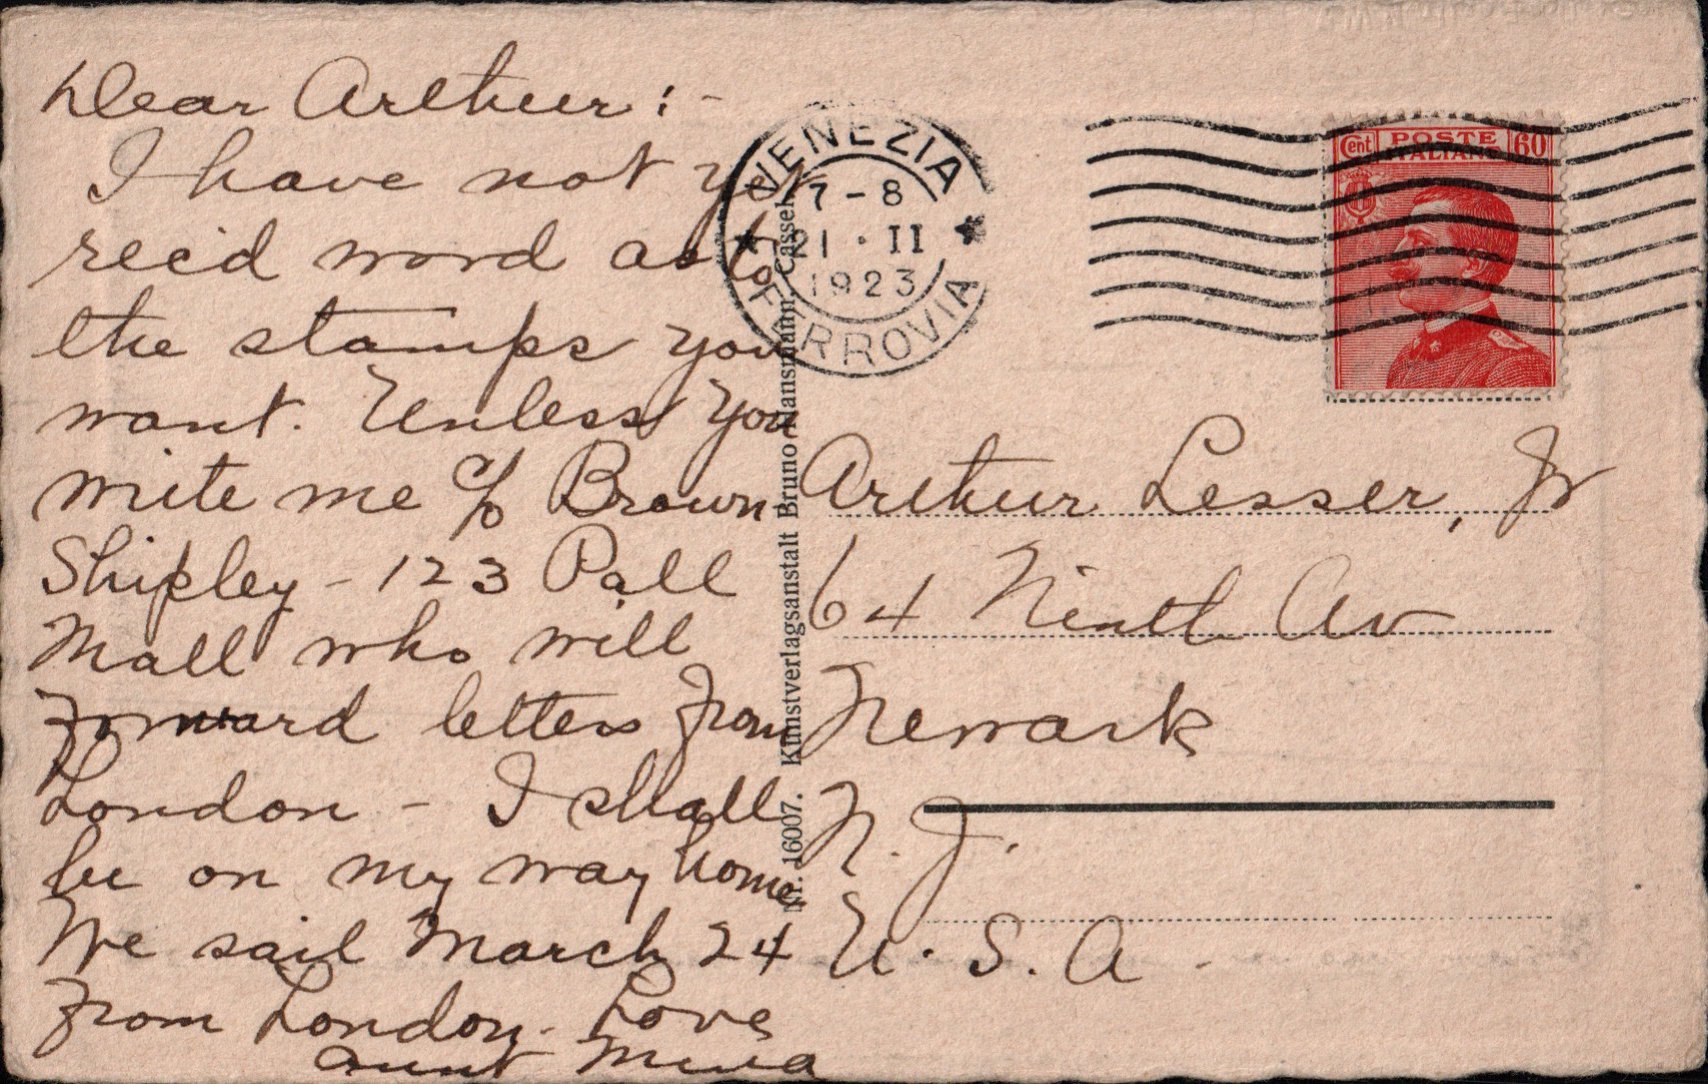 Dear Arthur:-
I have not yet
rec'd word as to
the stamps you
want. Unless you
write me c/o Brown
Shipley - 123 Pall
Mall who will
forward letters from
London - I shall
be on my way home
We sail March 24
from London. Love
Aunt
VENEZIA
7-8
21·II
1923
FERROVIA
Cent POSTE 60
ITALIANE
Nr. 16007. Kunstverlagsanstalt Bruno Hansmann, Cassel
Arthur Lesser, Jr
64 Ninth Av
Newark
N. J.
U. S. A.